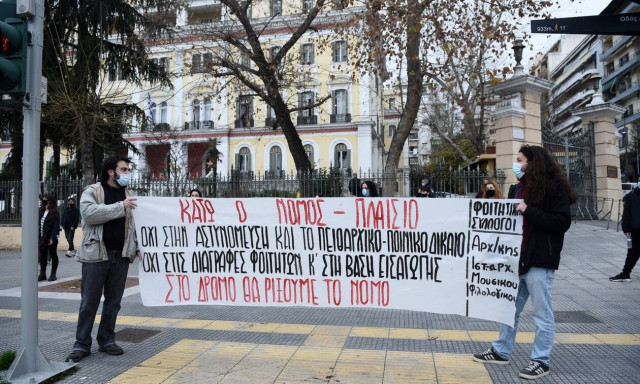 933m, 11
Οδος
ΚΑΤΩ Ο ΝΟΜΟΣ - ΠΛΑΙΣΙΟ
ΟΧΙ ΣΤΗΝ ΑΣΤΥΝΟΜΕΥΣΗ ΚΑΙ ΤΟ ΠΕΙΘΑΡΧΙΚΟ-ΠΟΙΝΙΚΟ ΔΙΚΑΙΟ
ΟΧΙ ΣΤΙΣ ΔΙΑΓΡΑΦΕΣ ΦΟΙΤΗΤΩΝ Κ' ΣΤΗ ΒΑΣΗ ΕΙΣΑΓΩΓΗΣ
ΣΤΟ ΔΡΟΜΟ ΘΑ ΡΙΞΟΥΜΕ ΤΟ ΝΟΜΟ
ΦΟΙΤΗΤΙΚΟΙ
ΣΥΛΛΟΓΟΙ
ΑΡΧ/ΚΗΣ
ΙΣΤ.ΑΡΧ.
ΜΟΥΣΙΚΟΥ
ΦΙΛΟΛΟΓΙΚΟΥ